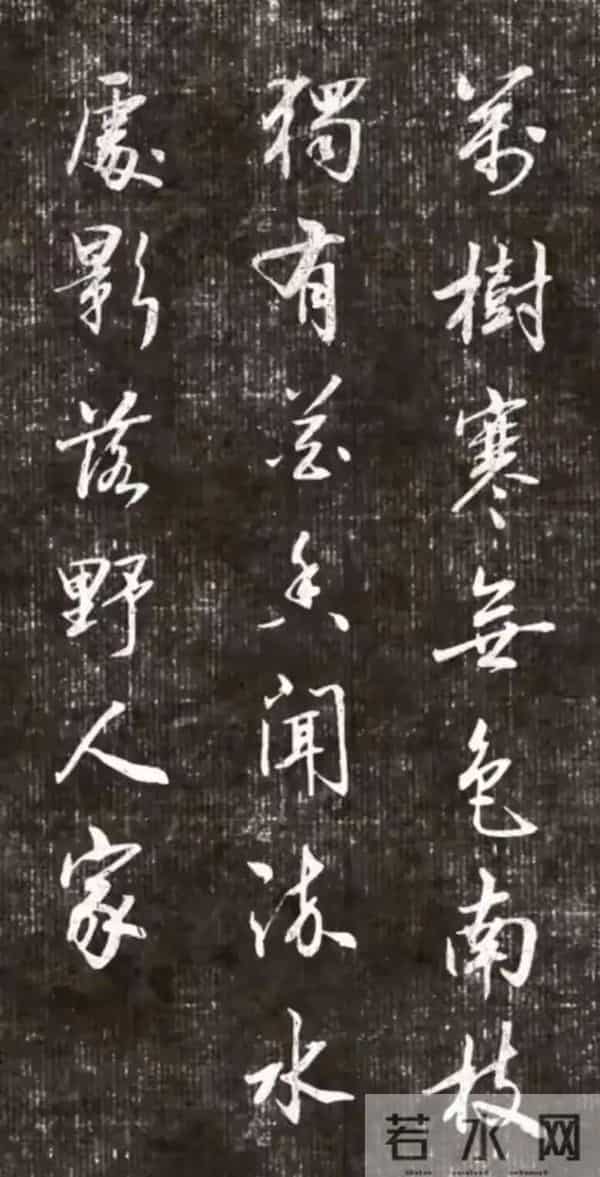 萬樹寒無色南枝
獨有花香聞流水
處影落野人家
若水网